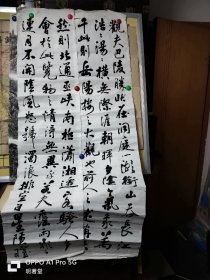 觀夫巴陵勝狀在洞庭一湖銜山吞長江
浩〻湯〻橫無際涯朝暉夕陰氣象萬
千此則岳陽樓之大觀也前人之
然則北通巫峽南極瀟湘遷客騷人
會於此覽物之情得無異乎若夫霪雨
連月不開陰風怒號濁浪排空日星隱
OPPO A1 Pro 5G